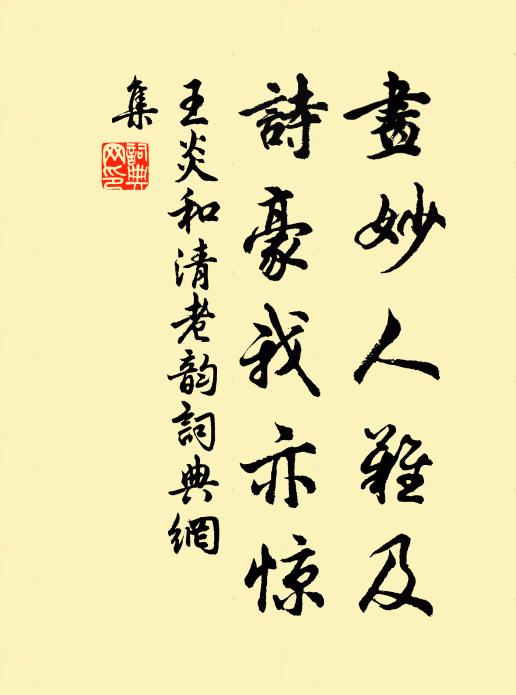 畫妙人難及
詩豪我亦惊
王炎和清老韵詞典網
集
詞典网印